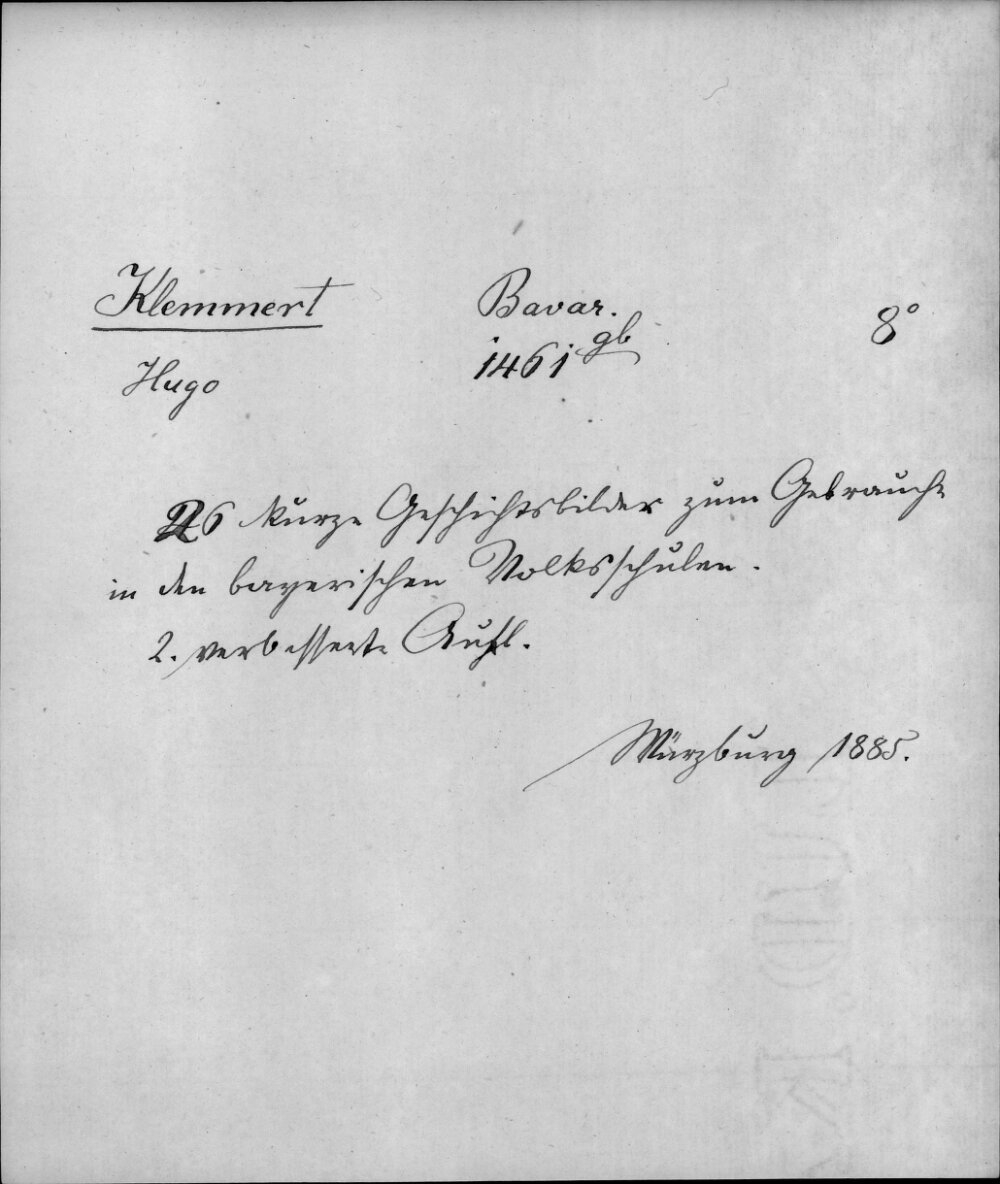 Klemmert Bavar. 8°
Hugo 1461 gb
26 kurze Geschichtsbilder zum Gebrauche
in den bayerischen Volksschulen.
2. verbesserte Aufl.
Würzburg 1885.